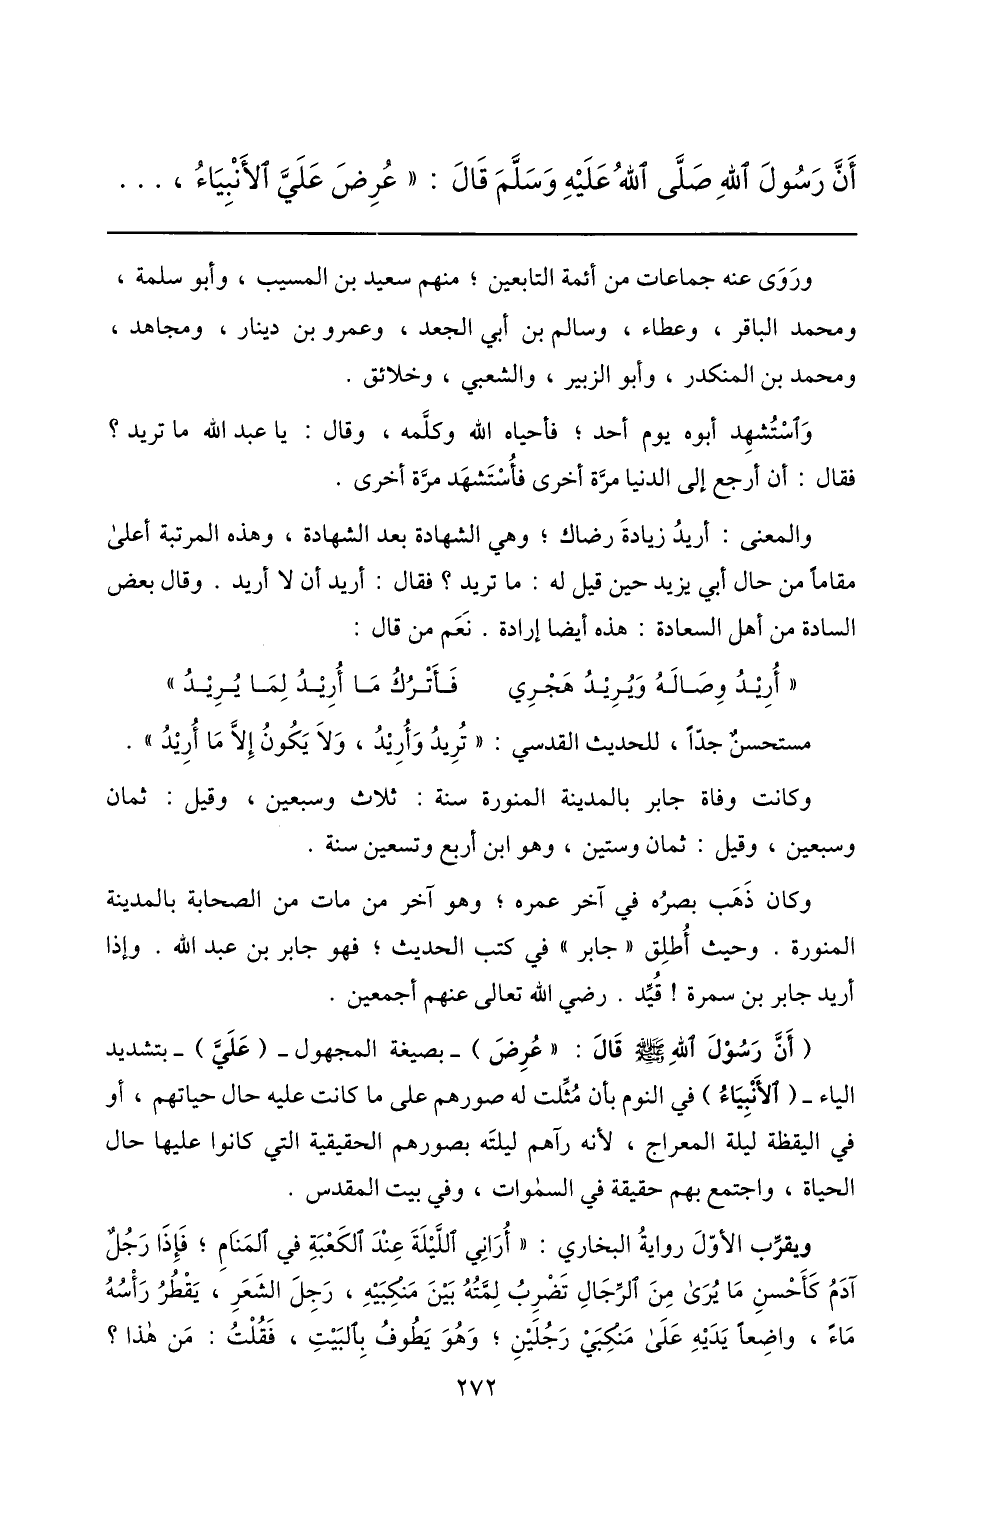 أَنَّ رَسُولَ ٱللهِ صَلَّى ٱللهُ عَلَيْهِ وَسَلَّمَ قَالَ : « عُرِضَ عَلَيَّ ٱلأَنْبِيَاءُ ، . . .
ورَوَى عنه جماعات من أئمة التابعين ؛ منهم سعيد بن المسيب ، وأبو سلمة ،
ومحمد الباقر ، وعطاء ، وسالم بن أبي الجعد ، وعمرو بن دينار ، ومجاهد ،
ومحمد بن المنكدر ، وأبو الزبير ، والشعبي ، وخلائق .
وَٱسْتُشهِد أبوه يوم أحد ؛ فأحياه الله وكلَّمه ، وقال : يا عبد الله ما تريد ؟
فقال : أن أرجع إلى الدنيا مرَّة أخرى فأُسْتَشهَد مرَّة أخرى .
والمعنى : أريدُ زيادةَ رضاك ؛ وهي الشهادة بعد الشهادة ، وهذه المرتبة أعلىٰ
مقاماً من حال أبي يزيد حين قيل له : ما تريد ؟ فقال : أريد أن لا أريد . وقال بعض
السادة من أهل السعادة : هذه أيضا إرادة . نَعَم من قال :
« أُرِيْـدُ وِصَـالَـهُ وَيُـرِيْـدُ هَجْـرِي فَـأَتْـرُكُ مَـا أُرِيْـدُ لِمَـا يُـرِيْـدُ »
مستحسنٌ جدّاً ، للحديث القدسي : « تُرِيدُ وَأُرِيْدُ ، وَلاَ يَكُونُ إِلاَّ مَا أُرِيْدُ » .
وكانت وفاة جابر بالمدينة المنورة سنة : ثلاث وسبعين ، وقيل : ثمان
وسبعين ، وقيل : ثمان وستين ، وهو ابن أربع وتسعين سنة .
وكان ذَهَب بصرُه في آخر عمره ؛ وهو آخر من مات من الصحابة بالمدينة
المنورة . وحيث أُطلِق « جابر » في كتب الحديث ؛ فهو جابر بن عبد الله . وإذا
أريد جابر بن سمرة ! قُيِّد . رضي الله تعالى عنهم أجمعين .
( أَنَّ رَسُوْلَ ٱللهِ ﷺ قَالَ : « عُرِضَ ) ـ بصيغة المجهول ـ ( عَلَيَّ ) ـ بتشديد
الياء ـ ( ٱلأَنْبِيَاءُ ) في النوم بأن مُثِّلت له صورهم على ما كانت عليه حال حياتهم ، أو
في اليقظة ليلة المعراج ، لأنه رآهم ليلتَه بصورهم الحقيقية التي كانوا عليها حال
الحياة ، واجتمع بهم حقيقة في السمٰوات ، وفي بيت المقدس .
ويقرِّب الأوّلَ روايةُ البخاري : « أُرَانِي ٱللَّيْلَةَ عِنْدَ ٱلكَعْبَةِ في ٱلمَنَامِ ؛ فَإِذَا رَجُلٌ
آدَمُ كَأَحْسنِ مَا يُرَىٰ مِنَ ٱلرِّجَالِ تَضْرِبُ لِمَّتُهُ بَيْنَ مَنْكِبَيْهِ ، رَجِلَ الشَعَرِ ، يَقْطُرُ رَأْسُهُ
مَاءً ، واضِعاً يَدَيْهِ عَلَىٰ مَنْكِبَيْ رَجُلَيْنِ ؛ وَهُوَ يَطُوفُ بِٱلبَيْتِ ، فَقُلْتُ : مَن هٰذا ؟
٢٧٢